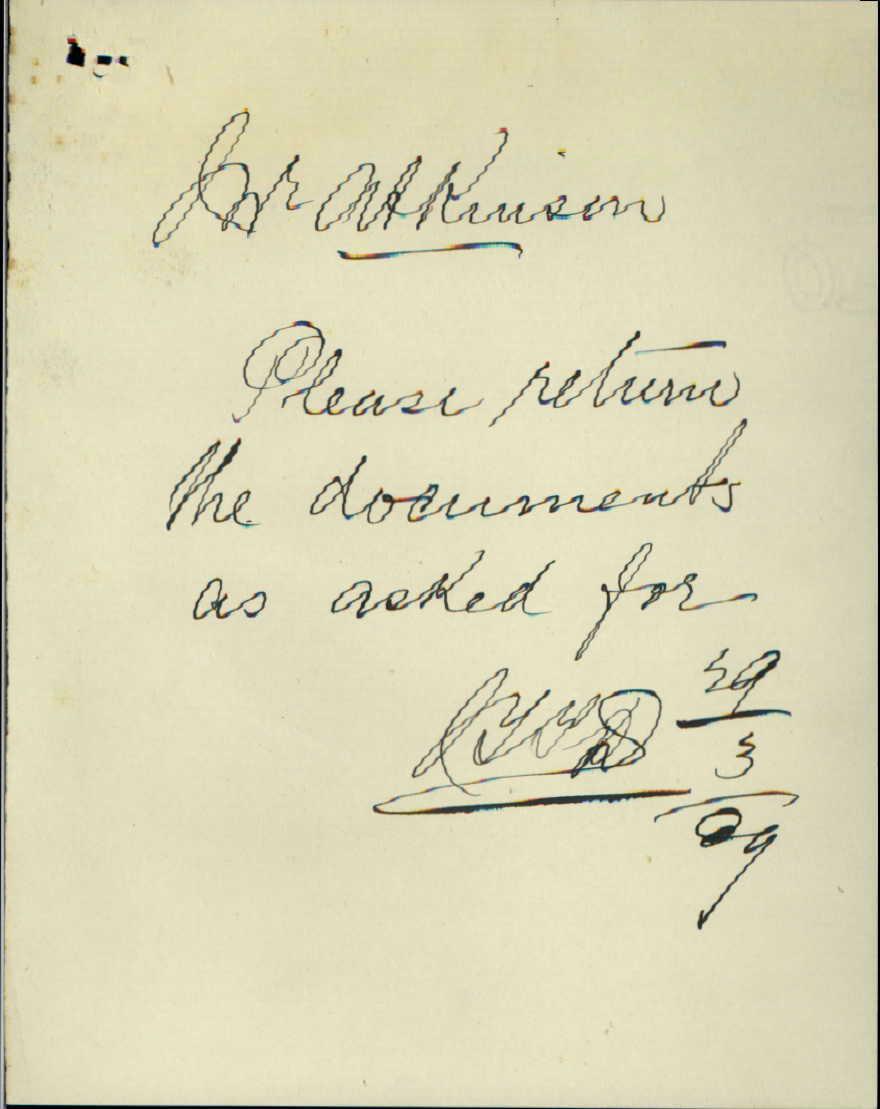 Mr Atkinson
Please return
the documents
as asked for
29
3
09